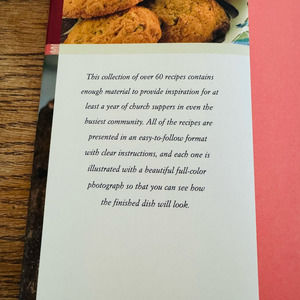 This collection of over 60 recipes contains
enough material to provide inspiration for at
least a year of church suppers in even the
busiest community. All of the recipes are
presented in an easy-to-follow format
with clear instructions, and each one is
illustrated with a beautiful full-color
photograph so that you can see how
the finished dish will look.